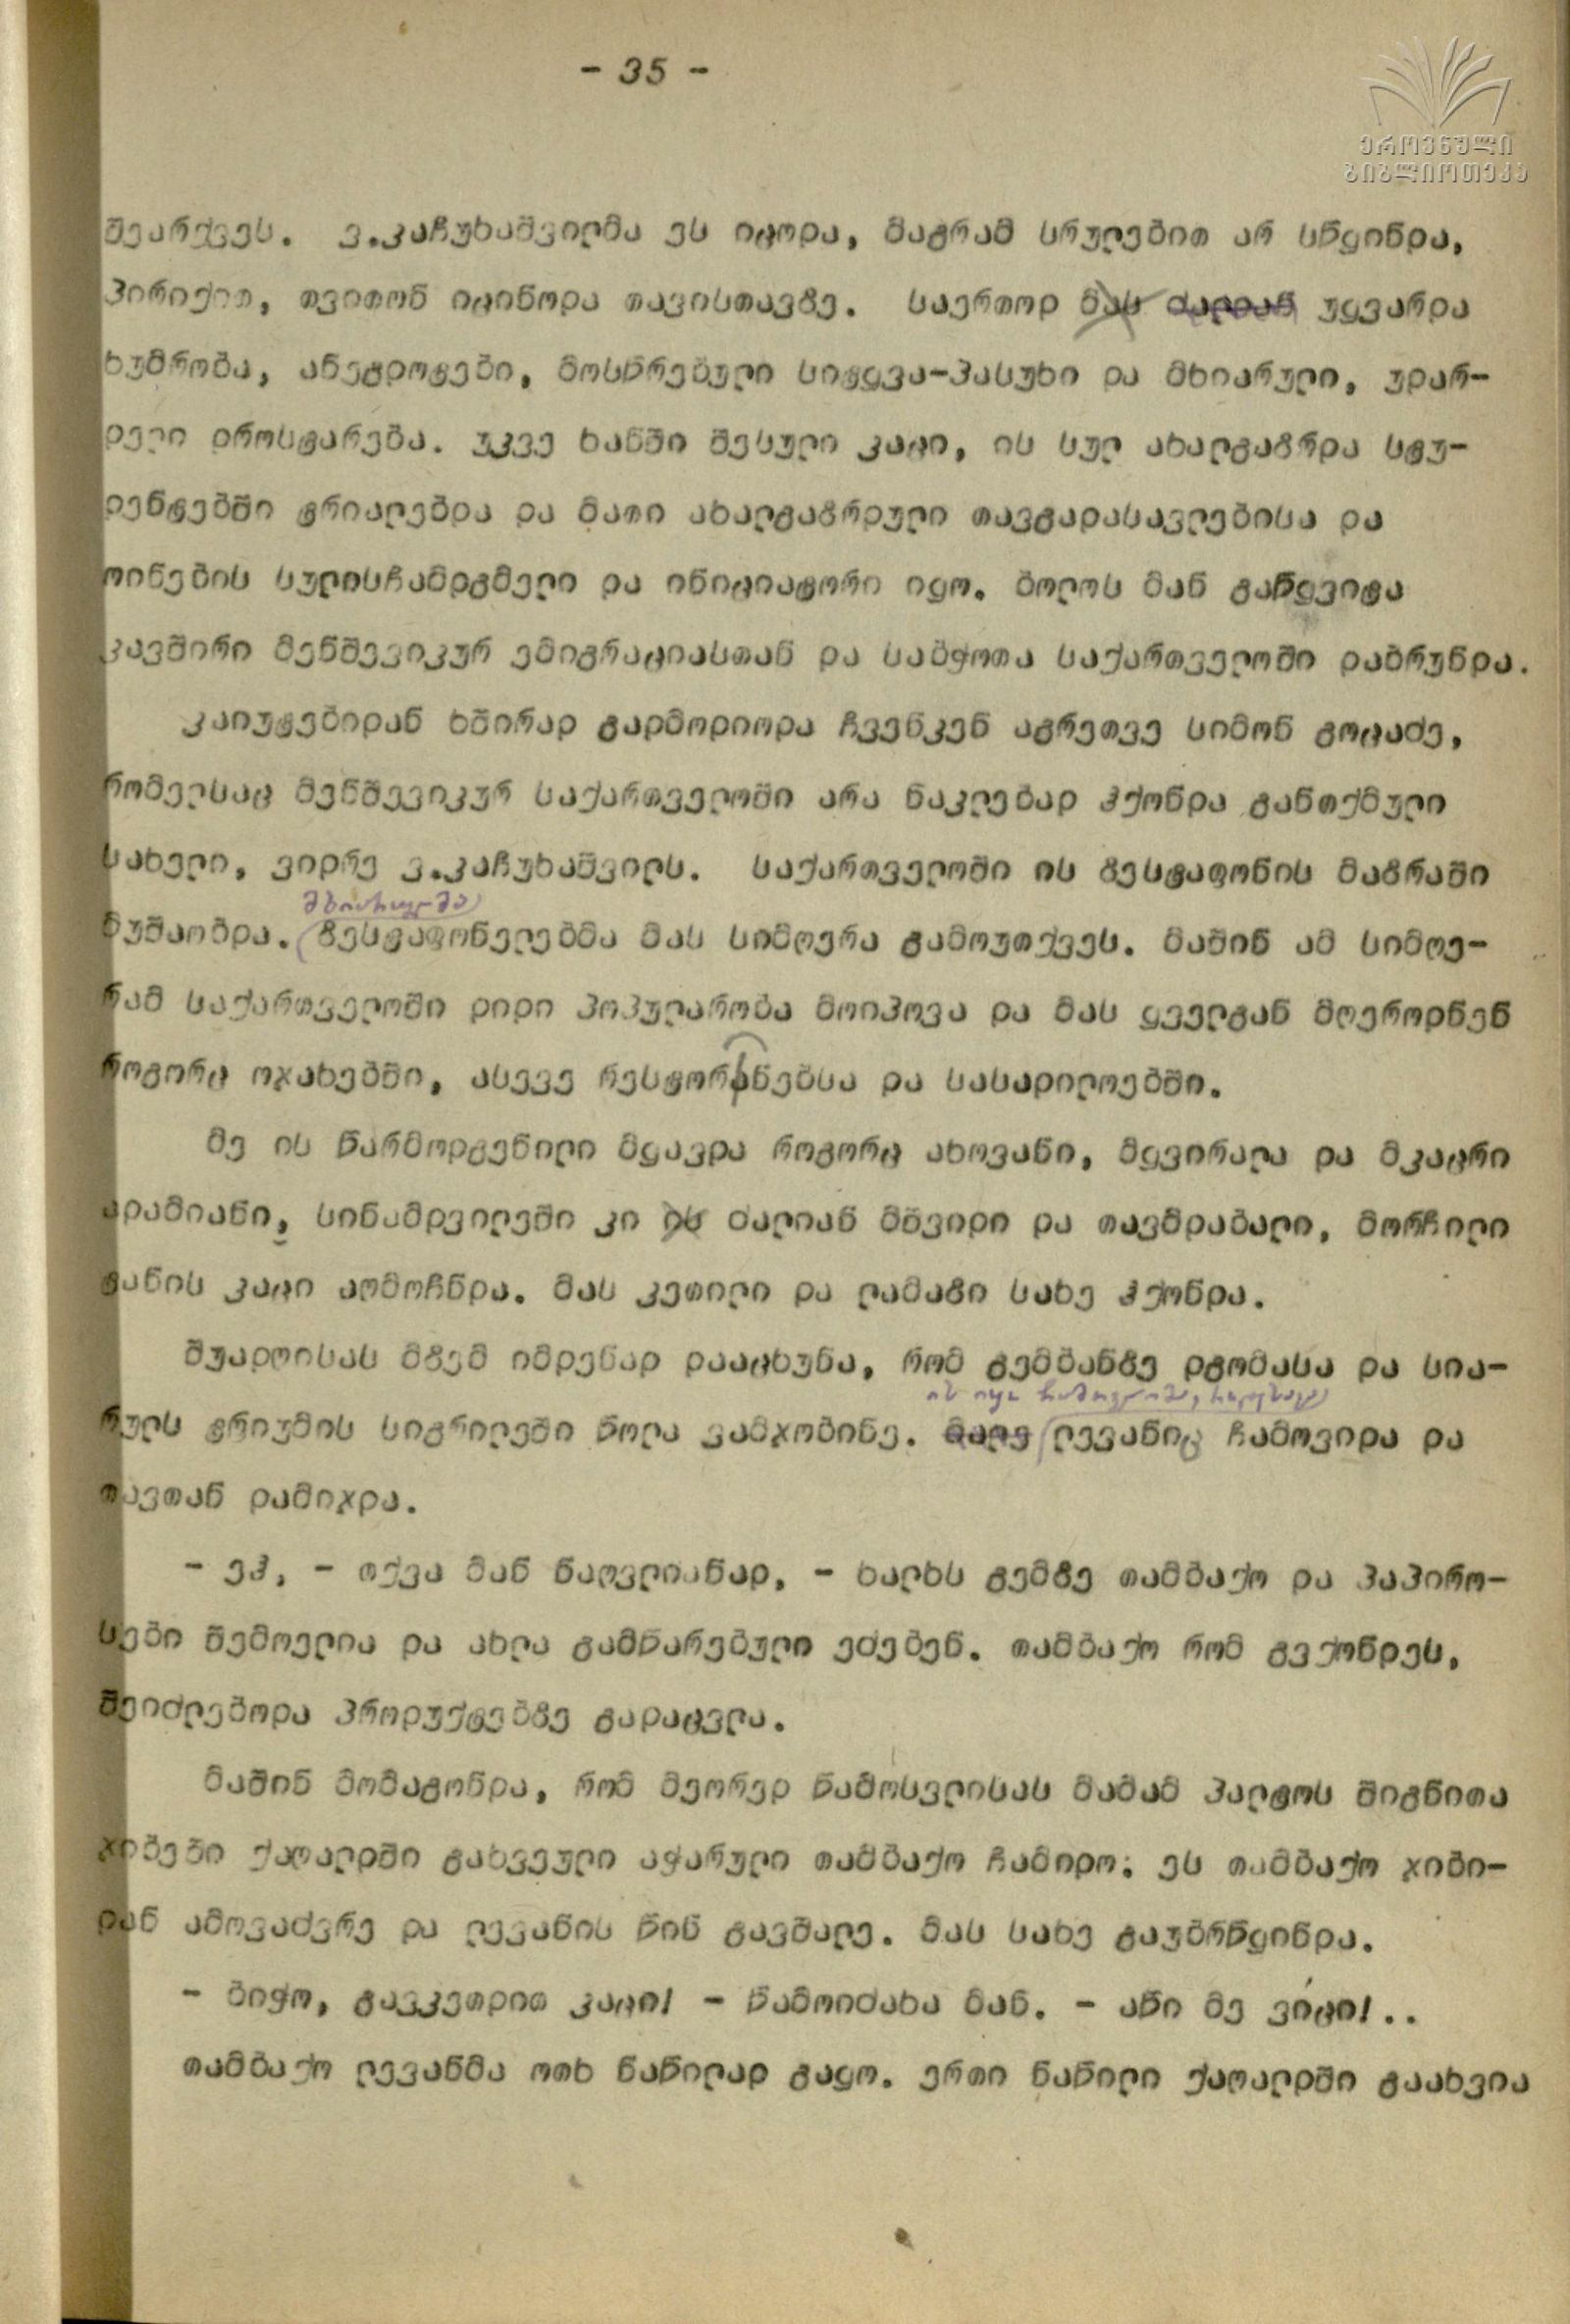 - 35 -
ეროვნული
ბიბლიოთეკა
შეარქვეს. ვ.კაჩუხაშვილმა ეს იცოდა, მაგრამ სრულებით არ სწყინდა,
პირიქით, თვითონ იცინოდა თავისთავზე. საერთოდ მას ძალიან უყვარდა
ხუმრობა, ანეგდოტები, მოსწრებული სიტყვა-პასუხი და მხიარული, უდარ-
დელი დროსტარება. უკვე ხანში შესული კაცი, ის სულ ახალგაზრდა სტუ-
დენტებში ტრიალებდა და მათი ახალგაზრდული თავგადასავლებისა და
ოინების სულისჩამდგმელი და ინიციატორი იყო. ბოლოს მან გაწყვიტა
კავშირი მენშევიკურ ემიგრაციასთან და საბჭოთა საქართველოში დაბრუნდა.
კაიუტებიდან ხშირად გადმოდიოდა ჩვენკენ აგრეთვე სიმონ გოცაძე,
რომელსაც მენშევიკურ საქართველოში არა ნაკლებად ჰქონდა განთქმული
სახელი, ვიდრე ვ.კაჩუხაშვილს. საქართველოში ის ზესტაფონის მაზრაში
მხიარულმა
მუშაობდა. ზესტაფონელებმა მას სიმღერა გამოუთქვეს. მაშინ ამ სიმღე-
რამ საქართველოში დიდი პოპულარობა მოიპოვა და მას ყველგან მღეროდნენ
როგორც ოჯახებში, ასევე რესტორანებსა და სასადილოებში.
მე ის წარმოდგენილი მყავდა როგორც ახოვანი, მყვირალა და მკაცრი
ადამიანი, სინამდვილეში კი ის ძალიან მშვიდი და თავმდაბალი, მორჩილი
ტანის კაცი აღმოჩნდა. მას კეთილი და ლამაზი სახე ჰქონდა.
შუადღისას მზემ იმდენად დააცხუნა, რომ გემბანზე დგომასა და სია-
ის იყო ჩამოვლიმა,
რულს ტრიუმის სიგრილეში წოლა ვამჯობინე. მალე ლევანიც ჩამოვიდა და
თავთან დამიჯდა.
- ეჰ, - თქვა მან ნაღვლიანად, - ხალხს გემზე თამბაქო და პაპირო-
სები შემოელია და ახლა გამწარებული ეძებენ. თამბაქო რომ გვქონდეს,
შეიძლებოდა პროდუქტებზე გადაცვლა.
მაშინ მომაგონდა, რომ მეორედ წამოსვლისას მამამ პალტოს შიგნითა
ჯიბეში ქაღალდში გახვეული აჭარული თამბაქო ჩამიდო. ეს თამბაქო ჯიბი-
დან ამოვაძვრე და ლევანის წინ გავშალე. მას სახე გაუბრწყინდა.
- ბიჭო, გავკეთდით კაცი! - წამოიძახა მან. - აწი მე ვიცი!..
თამბაქო ლევანმა ოთხ ნაწილად გაყო. ერთი ნაწილი ქაღალდში გაახვია